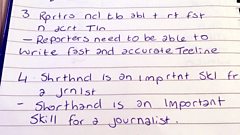 3 Rprtrs ncl tb abl t rt fst
n acrt Tln
- Reporters need to be able to
write fast and accurate Teeline
4 Shrthnd is an imprtnt Skl for
a jrnlst
- Shorthand is an important
Skill for a journalist.